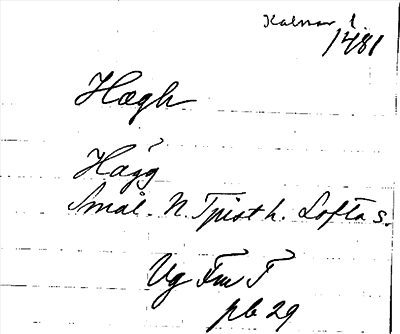 Kalmar l.
1481
Hægh
Hägg
Smål. N. Tjust h. Lofta s.
Vg Fm T
pb 29